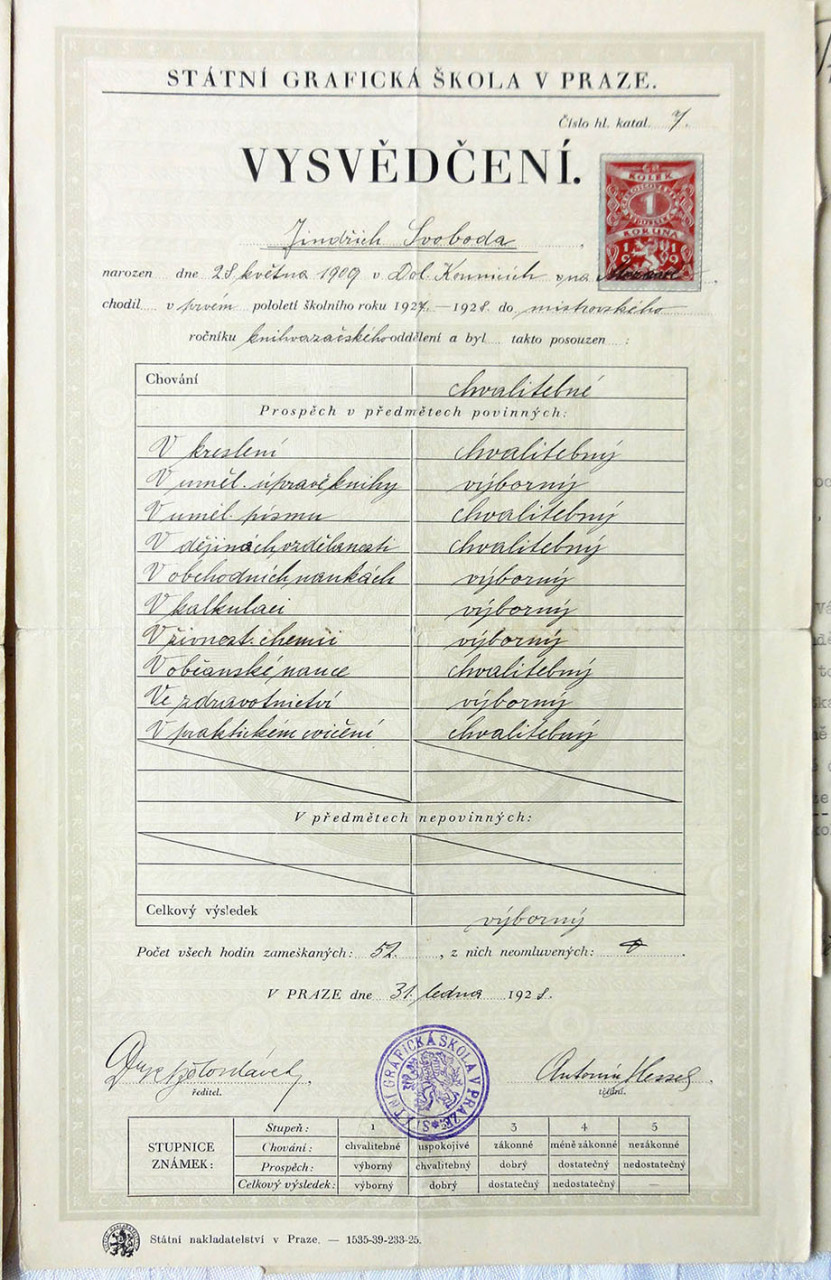 STÁTNÍ GRAFICKÁ ŠKOLA V PRAZE.
Číslo hl. katal. 7.
VYSVĚDČENÍ.
KOLEK
1
KORUNA
1919
Jindřich Svoboda
narozen dne 28 května 1909 v Dol. Kounicích na Moravě
chodil v prvém pololetí školního roku 1927.—1928. do mistrovského
ročníku knihvazačského oddělení a byl takto posouzen :
Chování chvalitebné
Prospěch v předmětech povinných:
V kreslení chvalitebný
V uměl. úpravě knihy výborný
V uměl. písmu chvalitebný
V dějinách vzdělanosti chvalitebný
V obchodních naukách výborný
V kalkulaci výborný
V živnost. chemii výborný
V občanské nauce chvalitebný
Ve zdravotnictví výborný
V praktickém cvičení chvalitebný
V předmětech nepovinných:
Celkový výsledek výborný
Počet všech hodin zameškaných: 52. , z nich neomluvených: 0
V PRAZE dne 31. ledna 1928.
STÁTNÍ GRAFICKÁ ŠKOLA V PRAZE
Antonín
ředitel. třídní.
STUPNICE ZNÁMEK:
Stupeň: 1 3 4 5
Chování: chvalitebné uspokojivé zákonné méně zákonné nezákonné
Prospěch: výborný chvalitebný dobrý dostatečný nedostatečný
Celkový výsledek: výborný dobrý dostatečný nedostatečný —
Státní nakladatelství v Praze. — 1535-39-233-25.